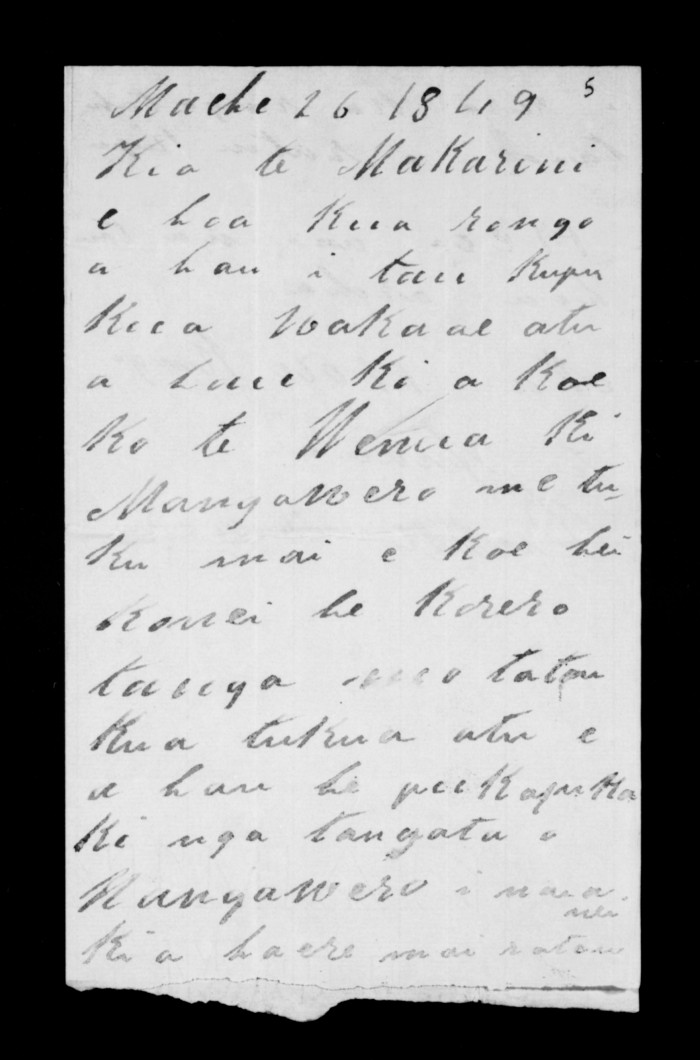 Mache 26 1849 5
Kia te Makarini
e hoa Kua rongo
a hau i tau Kupu
Kua wakaae atu
a hau Ki a Koe
Ko te Wenua Ki
Mangawero me tu-
ku mai e Koe hei
Konei he Korero
tanga mo tatou
Kua tukua atu e
a hau he pukapuka
Ki nga tangata o
Mangawero i naia
nei
Ki a haere mai ratou